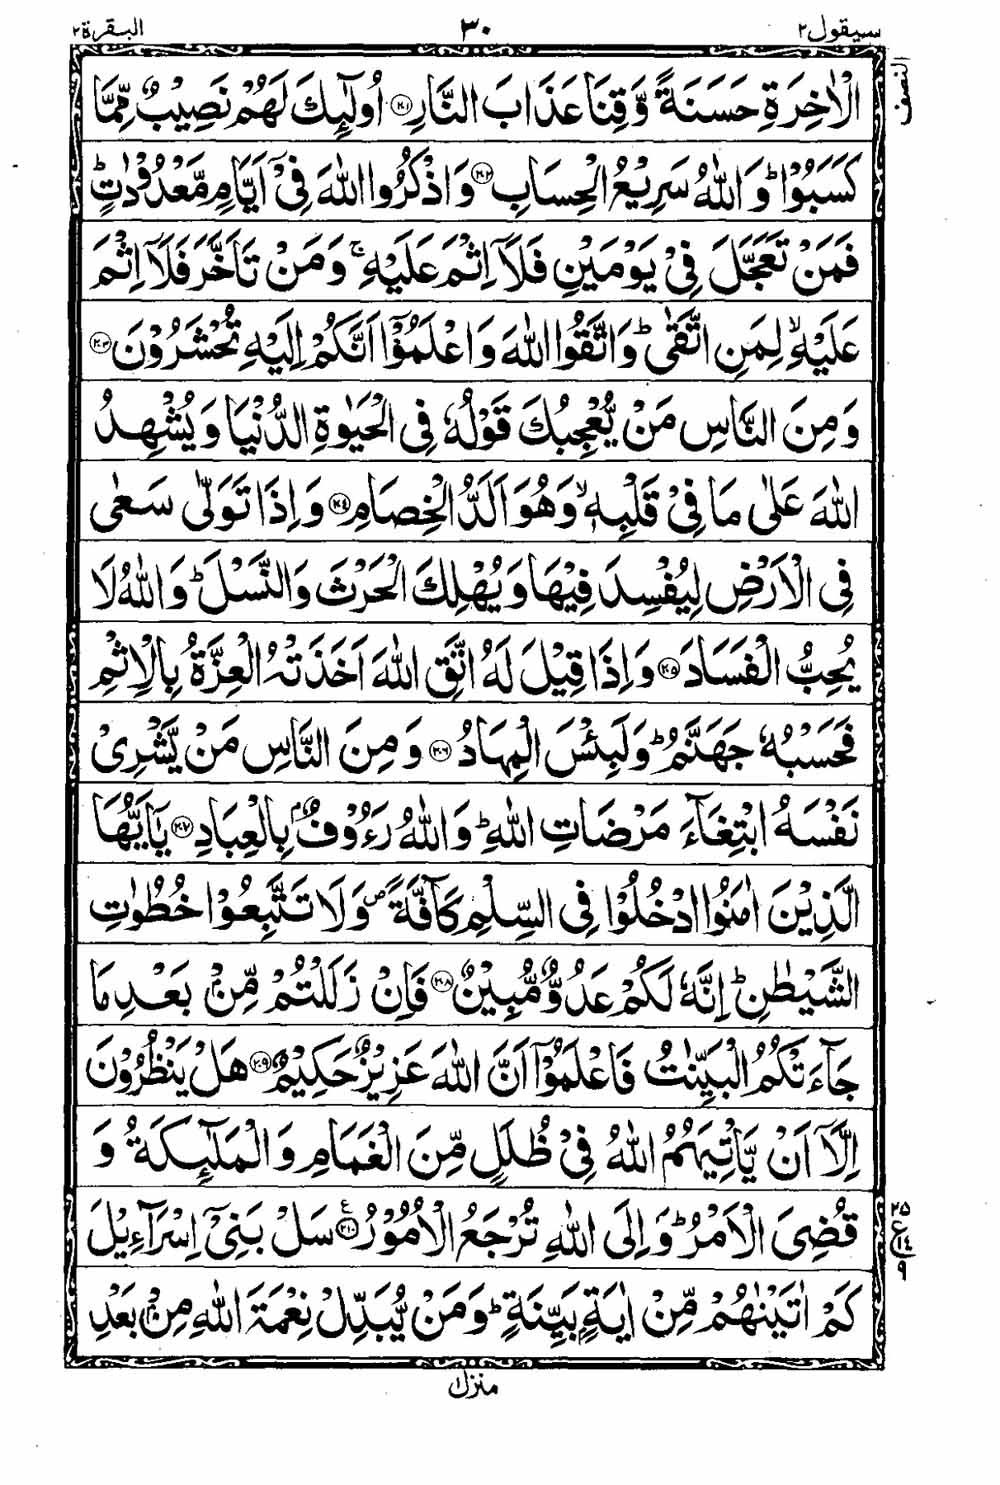 سيقول ٢ ٣٠ البقرة ٢
النصف
الْاٰخِرَةِ حَسَنَةً وَّقِنَا عَذَابَ النَّارِ ﴿٢٠١﴾ اُولٰٓئِكَ لَهُمْ نَصِيْبٌ مِّمَّا
كَسَبُوْا ؕ وَاللّٰهُ سَرِيْعُ الْحِسَابِ ﴿٢٠٢﴾ وَاذْكُرُوا اللّٰهَ فِىْٓ اَيَّامٍ مَّعْدُوْدٰتٍ ؕ
فَمَنْ تَعَجَّلَ فِىْ يَوْمَيْنِ فَلَاۤ اِثْمَ عَلَيْهِ ۚ وَمَنْ تَاَخَّرَ فَلَاۤ اِثْمَ
عَلَيْهِ ۙ لِمَنِ اتَّقٰى ؕ وَاتَّقُوا اللّٰهَ وَاعْلَمُوْٓا اَنَّكُمْ اِلَيْهِ تُحْشَرُوْنَ ﴿٢٠٣﴾
وَمِنَ النَّاسِ مَنْ يُّعْجِبُكَ قَوْلُهٗ فِى الْحَيٰوةِ الدُّنْيَا وَيُشْهِدُ
اللّٰهَ عَلٰى مَا فِىْ قَلْبِهٖ ۙ وَهُوَ اَلَدُّ الْخِصَامِ ﴿٢٠٤﴾ وَاِذَا تَوَلّٰى سَعٰى
فِى الْاَرْضِ لِيُفْسِدَ فِيْهَا وَيُهْلِكَ الْحَرْثَ وَالنَّسْلَ ؕ وَاللّٰهُ لَا
يُحِبُّ الْفَسَادَ ﴿٢٠٥﴾ وَاِذَا قِيْلَ لَهُ اتَّقِ اللّٰهَ اَخَذَتْهُ الْعِزَّةُ بِالْاِثْمِ
فَحَسْبُهٗ جَهَنَّمُ ؕ وَلَبِئْسَ الْمِهَادُ ﴿٢٠٦﴾ وَمِنَ النَّاسِ مَنْ يَّشْرِىْ
نَفْسَهُ ابْتِغَآءَ مَرْضَاتِ اللّٰهِ ؕ وَاللّٰهُ رَءُوْفٌۢ بِالْعِبَادِ ﴿٢٠٧﴾ يٰٓاَيُّهَا
الَّذِيْنَ اٰمَنُوا ادْخُلُوْا فِى السِّلْمِ كَآفَّةً ۖ وَلَا تَتَّبِعُوْا خُطُوٰتِ
الشَّيْطٰنِ ؕ اِنَّهٗ لَكُمْ عَدُوٌّ مُّبِيْنٌ ﴿٢٠٨﴾ فَاِنْ زَلَلْتُمْ مِّنْۢ بَعْدِ مَا
جَآءَتْكُمُ الْبَيِّنٰتُ فَاعْلَمُوْٓا اَنَّ اللّٰهَ عَزِيْزٌ حَكِيْمٌ ﴿٢٠٩﴾ هَلْ يَنْظُرُوْنَ
اِلَّاۤ اَنْ يَّاْتِيَهُمُ اللّٰهُ فِىْ ظُلَلٍ مِّنَ الْغَمَامِ وَالْمَلٰٓئِكَةُ وَ
قُضِىَ الْاَمْرُ ؕ وَاِلَى اللّٰهِ تُرْجَعُ الْاُمُوْرُ ﴿٢١٠﴾ ع سَلْ بَنِىْٓ اِسْرَآءِيْلَ
٢٥ ع ١٤ ٩
كَمْ اٰتَيْنٰهُمْ مِّنْ اٰيَةٍۢ بَيِّنَةٍ ؕ وَمَنْ يُّبَدِّلْ نِعْمَةَ اللّٰهِ مِنْۢ بَعْدِ
منزل ١